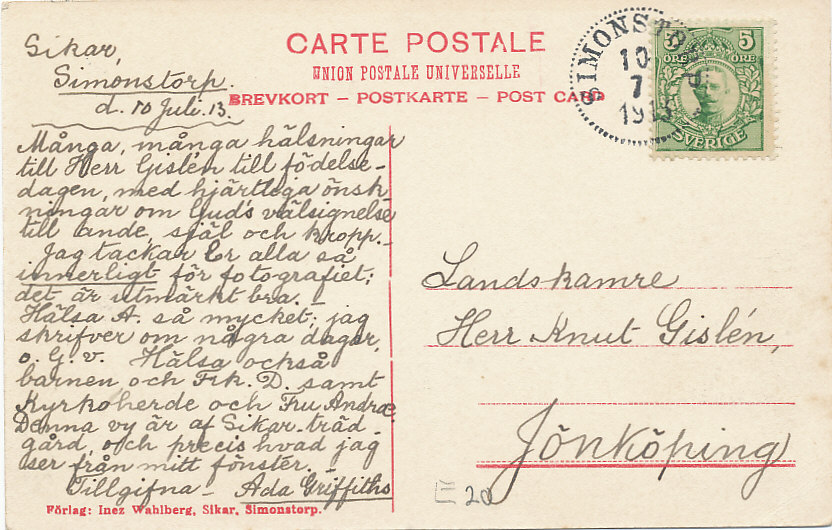 Sikar,
Simonstorp.
d. 10 Juli. 13.
CARTE POSTALE
UNION POSTALE UNIVERSELLE
BREVKORT – POSTKARTE – POST CARD
SIMONSTORP
10
7
1913
5 5
ÖRE ÖRE
SVERIGE
Många, många hälsningar
till Herr Gislén till födelse-
dagen, med hjärtliga önsk
ningar om Guds välsignelse
till ande, själ och kropp.–
Jag tackar Er alla så
innerligt för fotografiet;
det är utmärkt bra.
Hälsa A. så mycket; jag
skrifver om några dagar,
o. G. v. Hälsa också
barnen och Frk. D. samt
Kyrkoherde och Fru Andræ.
Denna vy är af Sikar-träd
gård, och precis hvad jag
ser från mitt fönster.
Tillgifna – Ada Griffiths
Förlag: Inez Wahlberg, Sikar, Simonstorp.
Landskamre
Herr Knut Gislén,
Jönköping
20